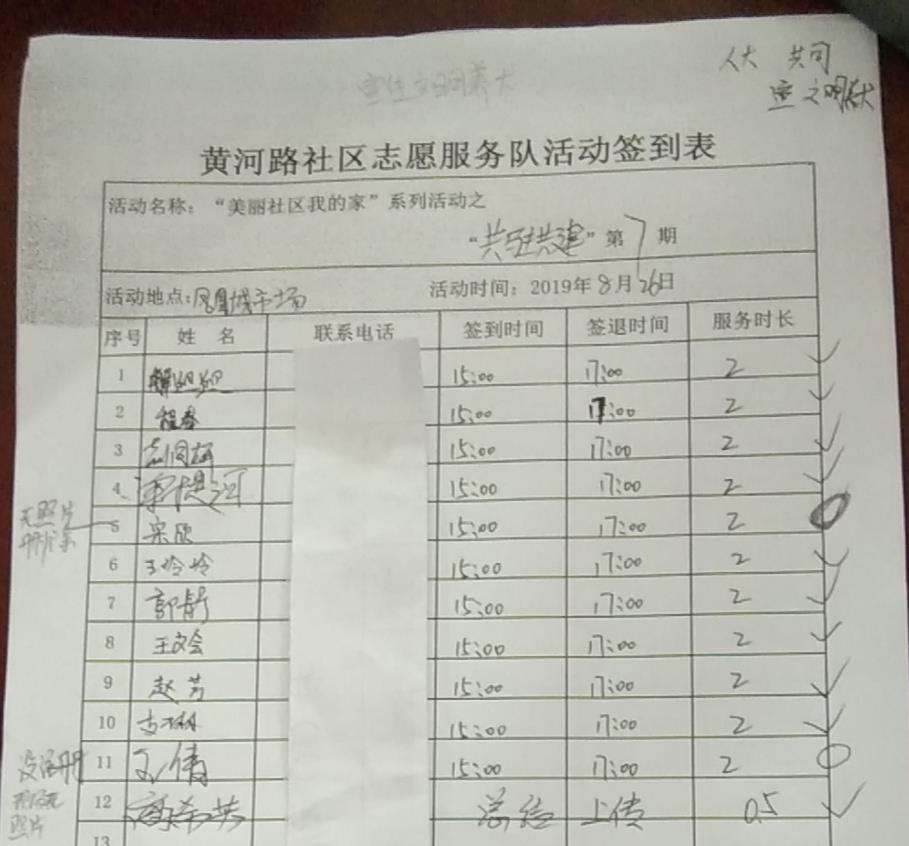 人大 共司
宣 文明养犬
宣传文明养犬
黄河路社区志愿服务队活动签到表
活动名称：“美丽社区我的家”系列活动之
“共驻共建”第7期
活动地点:凤凰城市场 活动时间：2019年8月26日
序号 姓 名 联系电话 签到时间 签退时间 服务时长
1 15:00 17:00 2
2 程春 15:00 17:00 2
3 15:00 17:00 2
4 15:00 17:00 2
无照片
5 宋欣 15:00 17:00 2
6 王玲玲 15:00 17:00 2
7 郭静 15:00 17:00 2
8 王文会 15:00 17:00 2
9 赵芳 15:00 17:00 2
10 15:00 17:00 2
没注册
11 王倩 15:00 17:00 2
12 高希英 总结 上传 0.5
照片
13